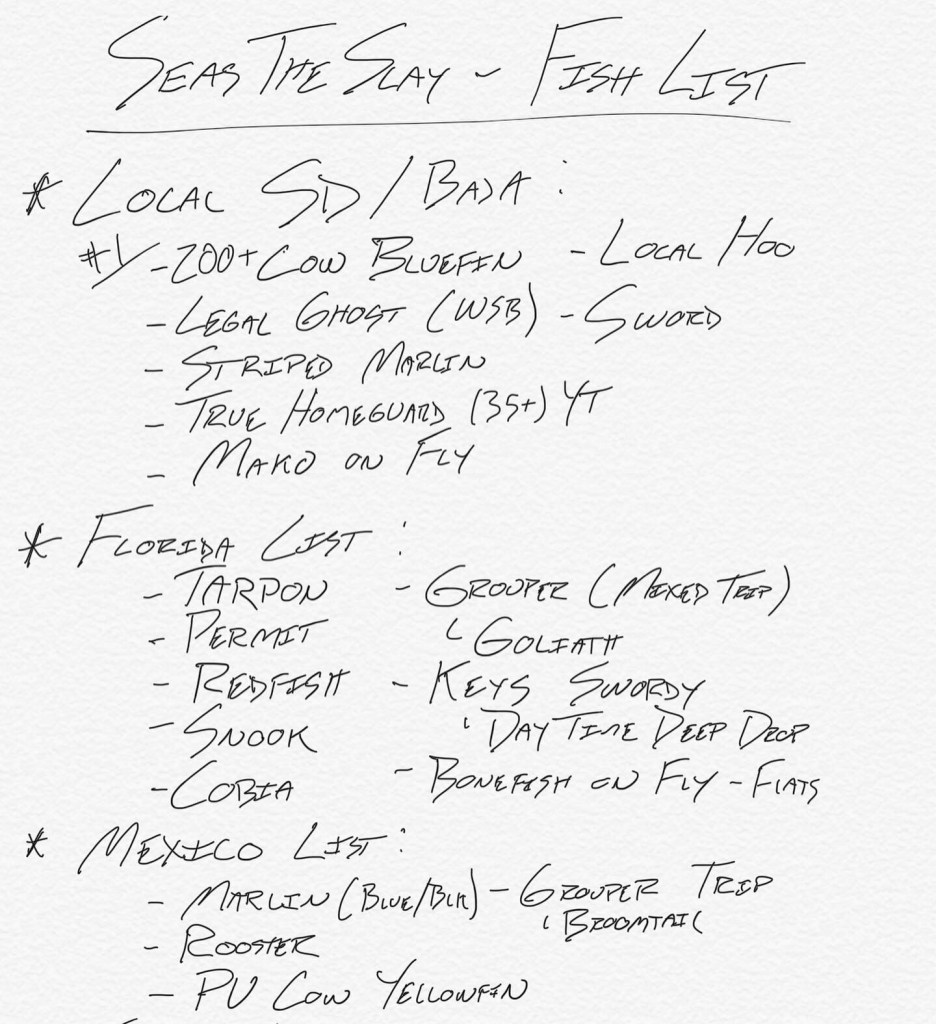 SEAS THE SLAY - FISH LIST
* LOCAL SD / BAJA :
#1 - 200+ COW BLUEFIN - LOCAL HOO
- LEGAL GHOST (WSB) - SWORD
- STRIPED MARLIN
- TRUE HOMEGUARD (35+) YT
- MAKO ON FLY
* FLORIDA LIST :
- TARPON - GROUPER (MIXED TRIP)
- PERMIT └ GOLIATH
- REDFISH - KEYS SWORDY
- SNOOK └ DAY TIME DEEP DROP
- COBIA - BONEFISH ON FLY - FLATS
* MEXICO LIST :
- MARLIN (BLUE/BLK) - GROUPER TRIP
└ BROOMTAIL
- ROOSTER
- PV COW YELLOWFIN